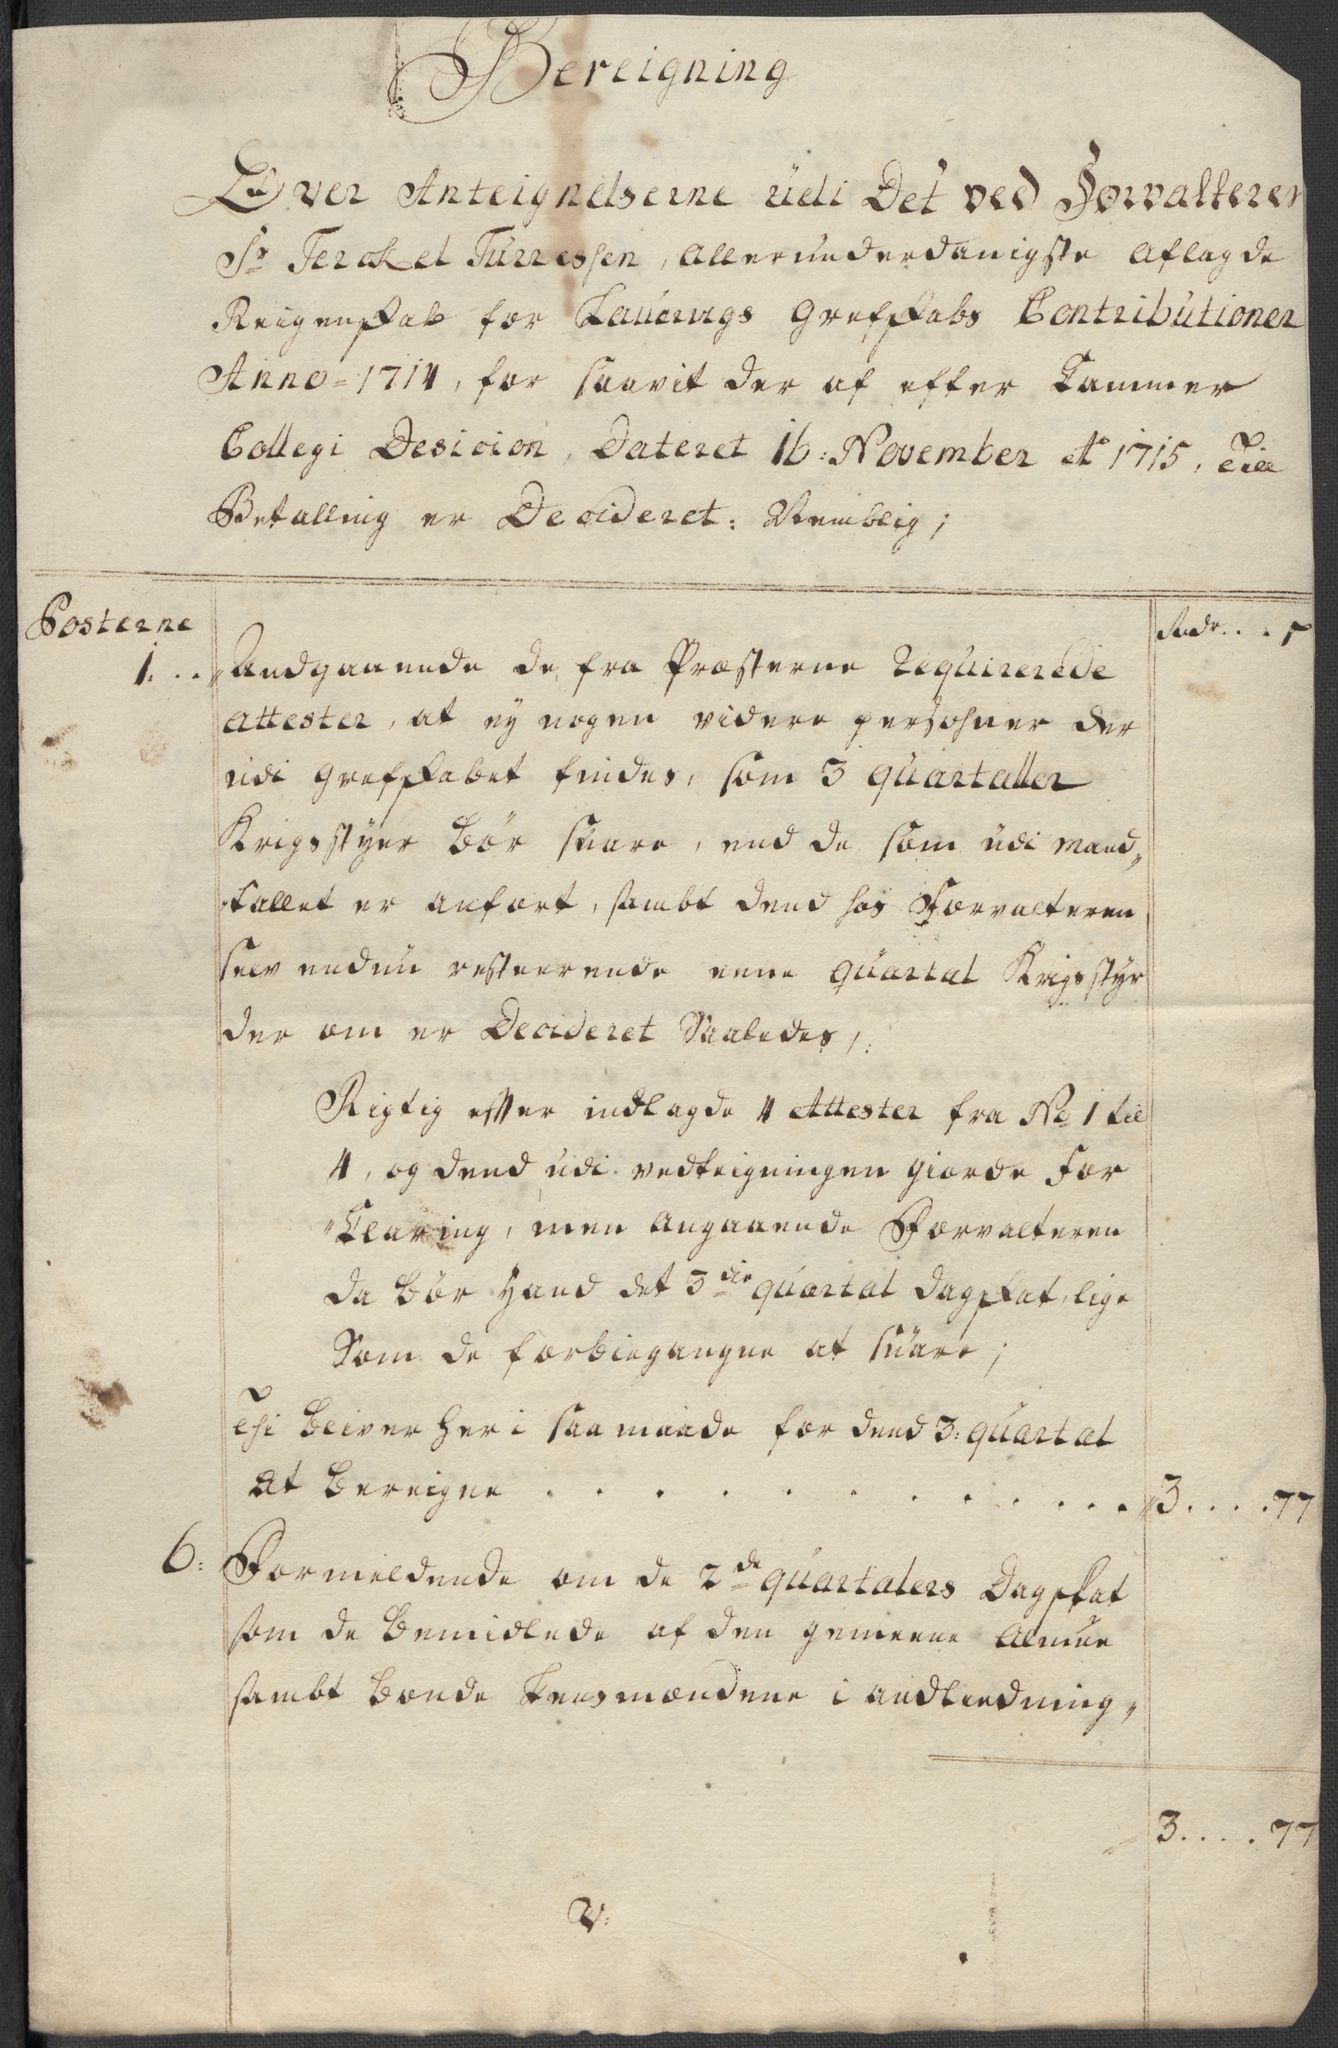 Bereigning
Over Anteignelserne udi Det ved Forvalteren
Sr Terckel Turressen, allerunderdanigste aflagde
Reigenskab for Laurvigs Grefskabs Contributioner
Anno = 1714, for saavit der af efter Cammer
Collegi Desicion, Dateret 16: November Ao 1715, till
Betalling er Decideret: Nemblig;
Posterne
Rdr. . . s
1. . . Andgaaende de fra Præsterne requirerede
attester, at ey nogen videre persohner der
udi grefskabet findes, som 3 quartaller
Krigsstyer bør suare, end de som udi mand„
„tallet er anført, sambt dend hos Forvalteren
selv endnu resterende eene quartal Krigsstyr
der om er Decideret Saaledes,:
Rigtig efter indlagde 4 Attester fra No 1 til
4, og dend udi vedteigningen giorde For
„Claring, men angaaende Forvalteren
da bør hand det 3die quartal dagskat, lige
Som de forbiegangne at suare;
Thi bliver her i saa maade for dend 3: quartal
at bereigne . . . . . . . . . . . . 3. . . . 77
6: Formeldende om de 2de quartalers Dagskat
som de bemidlede af den gemeene Almue
sambt bonde Lensmændene i andledning„
3. . . . 77
V: